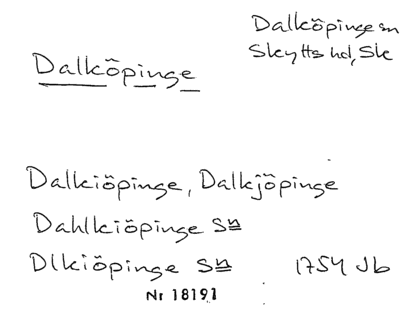 Dalköpinge sn
Skytts hd, Sk
Dalköpinge
Dalkiöpinge, Dalkjöpinge
Dahlkiöpinge Sn
Dlkiöpinge Sn 1754 Jb
Nr 18191